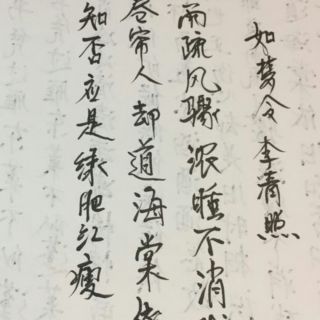 如梦令 李清照
雨疏风骤浓睡不消
卷帘人却道海棠依
知否应是绿肥红瘦